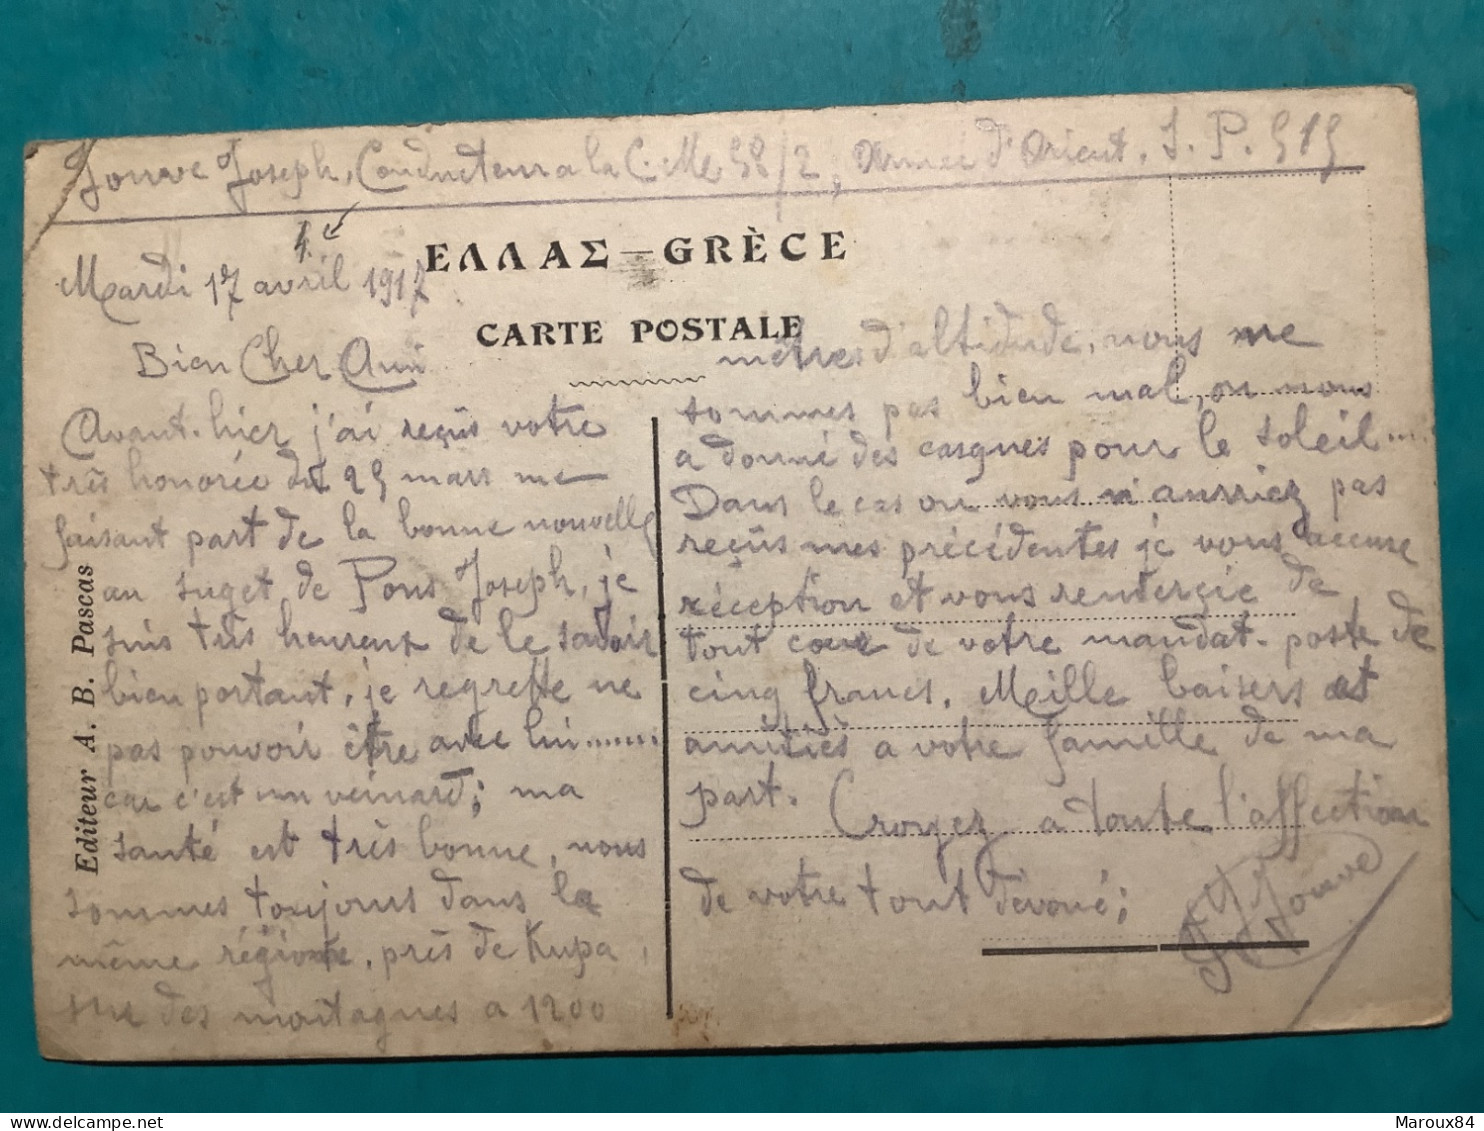 Jouve Joseph, Conducteur a la C. Me 58/2, Armée d'Orient, S. P. 515
4.
Mardi 17 avril 1917
ΕΛΛΑΣ – GRÈCE
CARTE POSTALE
Bien Cher Ami
Avant-hier j'ai reçus votre
très honorée du 25 mars me
faisant part de la bonne nouvelle
au suget de Pons Joseph, je
suis très heureux de le savoir
bien portant, je regrette ne
pas pouvoir être avec lui.......
car c'est un veinard; ma
santé est très bonne, nous
sommes toujours dans la
même région, près de Kupa,
sur des montagnes a 1200
mètres d'altidude, nous ne
sommes pas bien mal, on nous
a donné des casques pour le soleil....
Dans le cas ou vous n'aurriez pas
reçus mes précédentes je vous accuse
réception et vous remerçie de
tout cœur de votre mandat-poste de
cinq francs. Meille baisers et
amitiès a votre famille de ma
part. Croyez a toute l'affection
de votre tout dévoué;
Jouve
Editeur A. B. Pascas
Maroux84